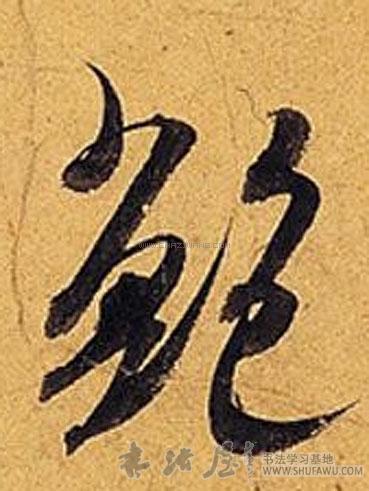 鮑
书法学习基地
WWW.SHUFAWU.COM